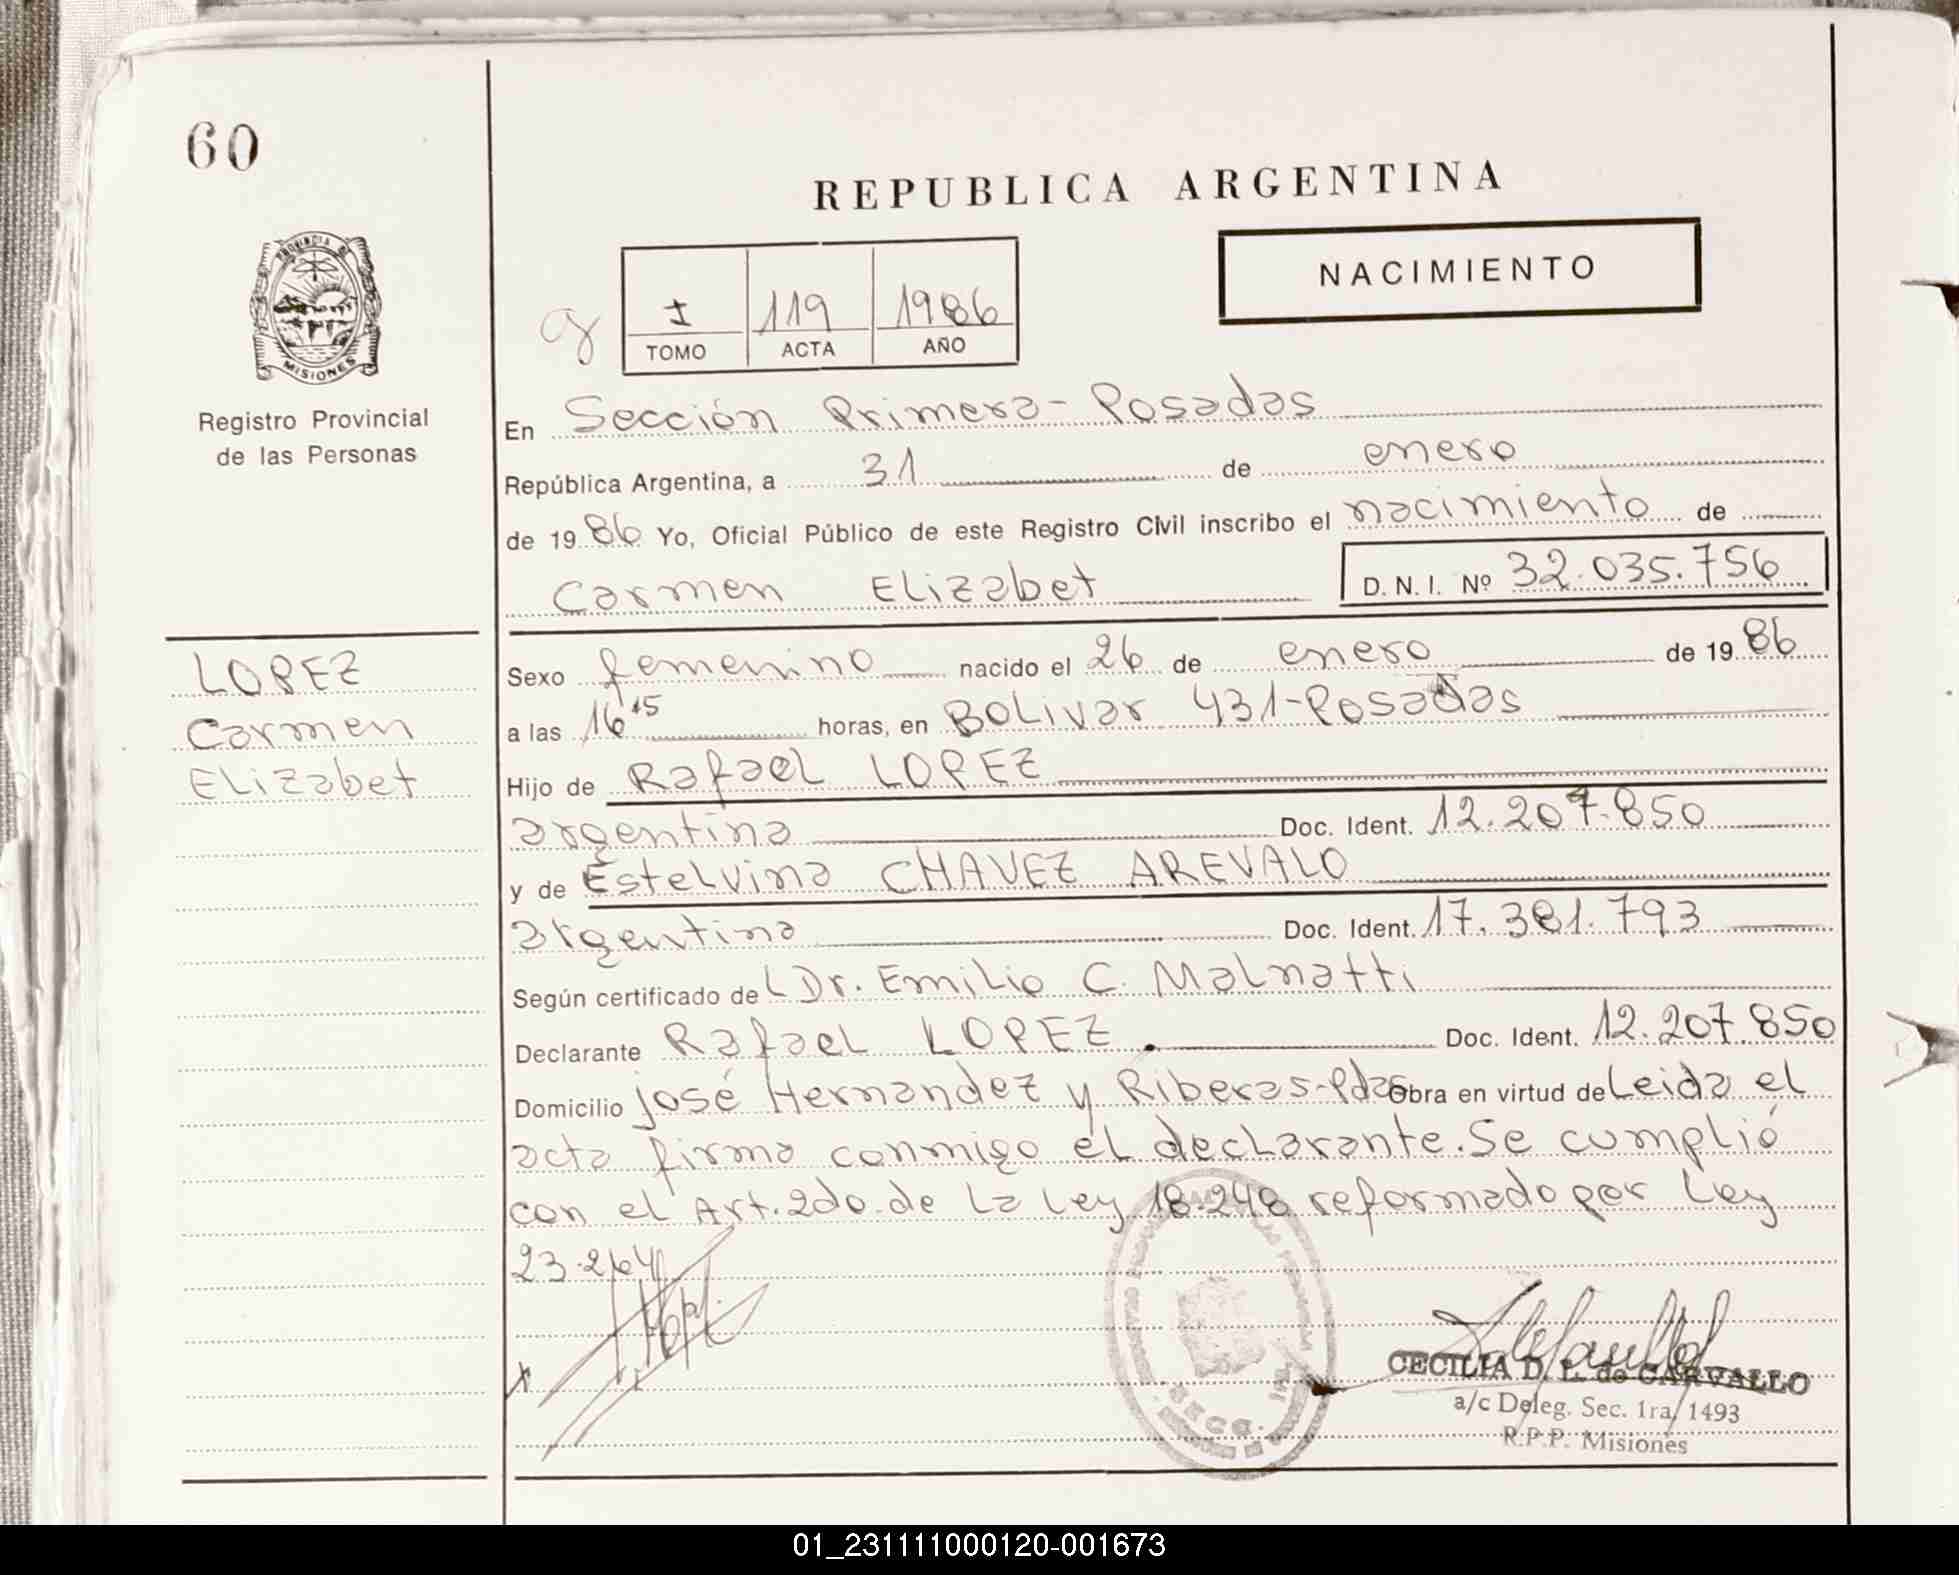 60
REPUBLICA ARGENTINA
NACIMIENTO
I 119 1986
TOMO ACTA AÑO
PROVINCIA DE
MISIONES
Registro Provincial
de las Personas
En Sección Primera - Posadas
República Argentina, a 31 de enero
de 1986 Yo, Oficial Público de este Registro Civil inscribo el nacimiento de
Carmen Elizabet D.N.I. Nº 32.035.756
LOPEZ
Carmen
Elizabet
Sexo femenino nacido el 26 de enero de 1986
a las 16 15 horas, en Bolivar 431-Posadas
Hijo de Rafael LOPEZ
argentina Doc. Ident. 12.207.850
y de Estelvina CHAVEZ AREVALO
argentina Doc. Ident. 17.381.793
Según certificado del Dr. Emilio C. Malnatti
Declarante Rafael LOPEZ Doc. Ident. 12.207.850
Domicilio José Hernandez y Riberas-Pdas Obra en virtud de Leida el
acta firma conmigo el declarante. Se cumplió
con el Art. 2do. de la Ley 18.248 reformado por Ley
23.264
x
SECC. 1RA.
CECILIA D. L. de CARVALLO
a/c Deleg. Sec. 1ra/1493
R.P.P. Misiones
01_231111000120-001673